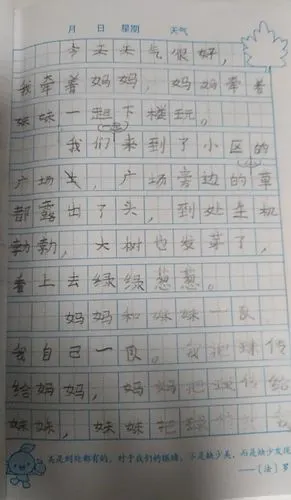 月 日 星期 天气
今天天气很好，
我牵着妈妈，妈妈牵着
妹妹，一起下楼玩。
我们来到了小区的
广场，广场旁边的草
都露出了头，到处生机
勃勃，大树也发芽了，
看上去绿绿葱葱。
妈妈和妹妹一队
我自己一队。我把球传
给妈妈，妈妈把球传给
妹妹，妹妹把球传给
美是到处都有的，对于我们的眼睛，不是缺少美，而是缺少发现
——（法）罗